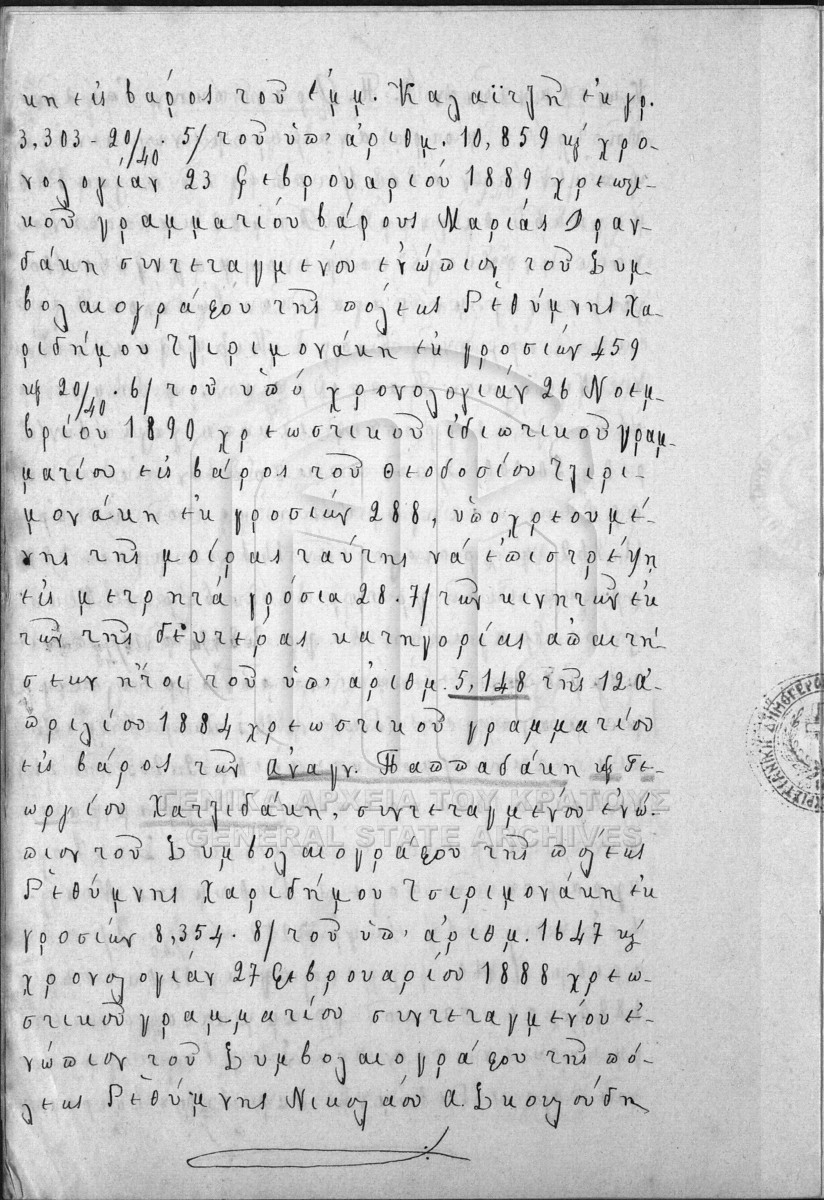 κη εἰς βάρος τοῦ Ἐμμ. Καλαϊτζῆ ἐκ γρ.
3,303 - 20/40 . 5/ τοῦ ὑπ' ἀριθμ. 10,859 κ χρο-
νολογίαν 23 Φεβρουαρίου 1889 χρεωστι-
κοῦ γραμματίου βάρους Μαρίας Φραν-
δάκη συντεταγμένου ἐνώπιον τοῦ Συμ-
βολαιογράφου τῆς πόλεως Ρεθύμνης Χα-
ριδήμου Τζιριμονάκη ἐκ γροσίων 459
κ 20/40 . 6/ τοῦ ὑπό χρονολογίαν 26 Νοεμ-
βρίου 1890 χρεωστικοῦ ἰδιωτικοῦ γραμ-
ματίου εἰς βάρος τοῦ Θεοδοσίου Τζιρι-
μονάκη ἐκ γροσίων 288, ὑποχρεουμέ-
νης τῆς μοίρας ταύτης νά ἐπιστρέψη
εἰς μετρητά γρόσια 28 . 7/ τῶν κινητῶν ἐκ
τῶν τῆς δευτέρας κατηγορίας ἀπαιτή-
σεων ἤτοι τοῦ ὑπ' ἀριθμ. 5,148 τῆς 12 Ἀ-
πριλίου 1884 χρεωστικοῦ γραμματίου
εἰς βάρος τῶν Ἀναγν. Παππαδάκη κ Γε-
ωργίου Χατζιδάκη, συντεταγμένου ἐνώ-
πιον τοῦ Συμβολαιογράφου τῆς πόλεως
Ρεθύμνης Χαριδήμου Τσεριμονάκη ἐκ
γροσίων 8,354 . 8/ τοῦ ὑπ' ἀριθμ. 1647 κ
χρονολογίαν 27 Φεβρουαρίου 1888 χρεω-
στικοῦ γραμματίου συντεταγμένου ἐ-
νώπιον τοῦ Συμβολαιογράφου τῆς πό-
λεως Ρεθύμνης Νικολάου Α. Σκουλούδη
ΓΕΝΙΚΑ ΑΡΧΕΙΑ ΤΟΥ ΚΡΑΤΟΥΣ
GENERAL STATE ARCHIVES